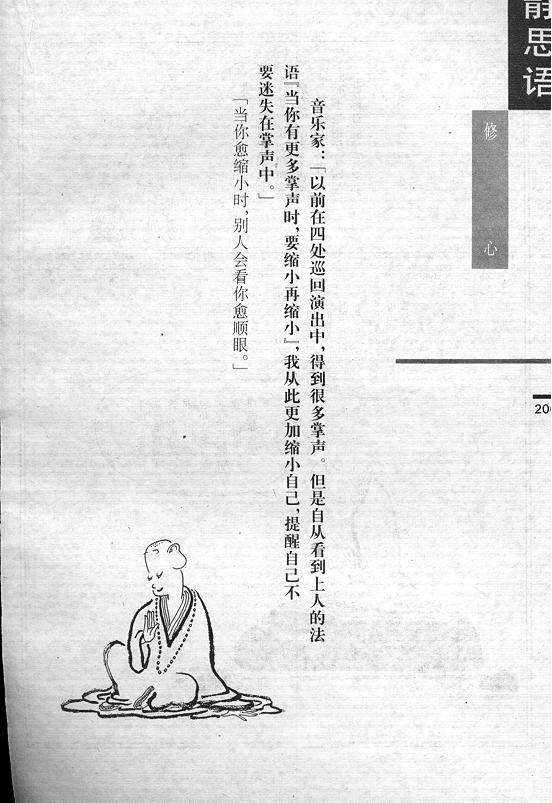 静思语
修心
200
音乐家：「以前在四处巡回演出中，得到很多掌声。但是自从看到上人的法
语『当你有更多掌声时，要缩小再缩小』，我从此更加缩小自己，提醒自己不
要迷失在掌声中。」
「当你愈缩小时，别人会看你愈顺眼。」